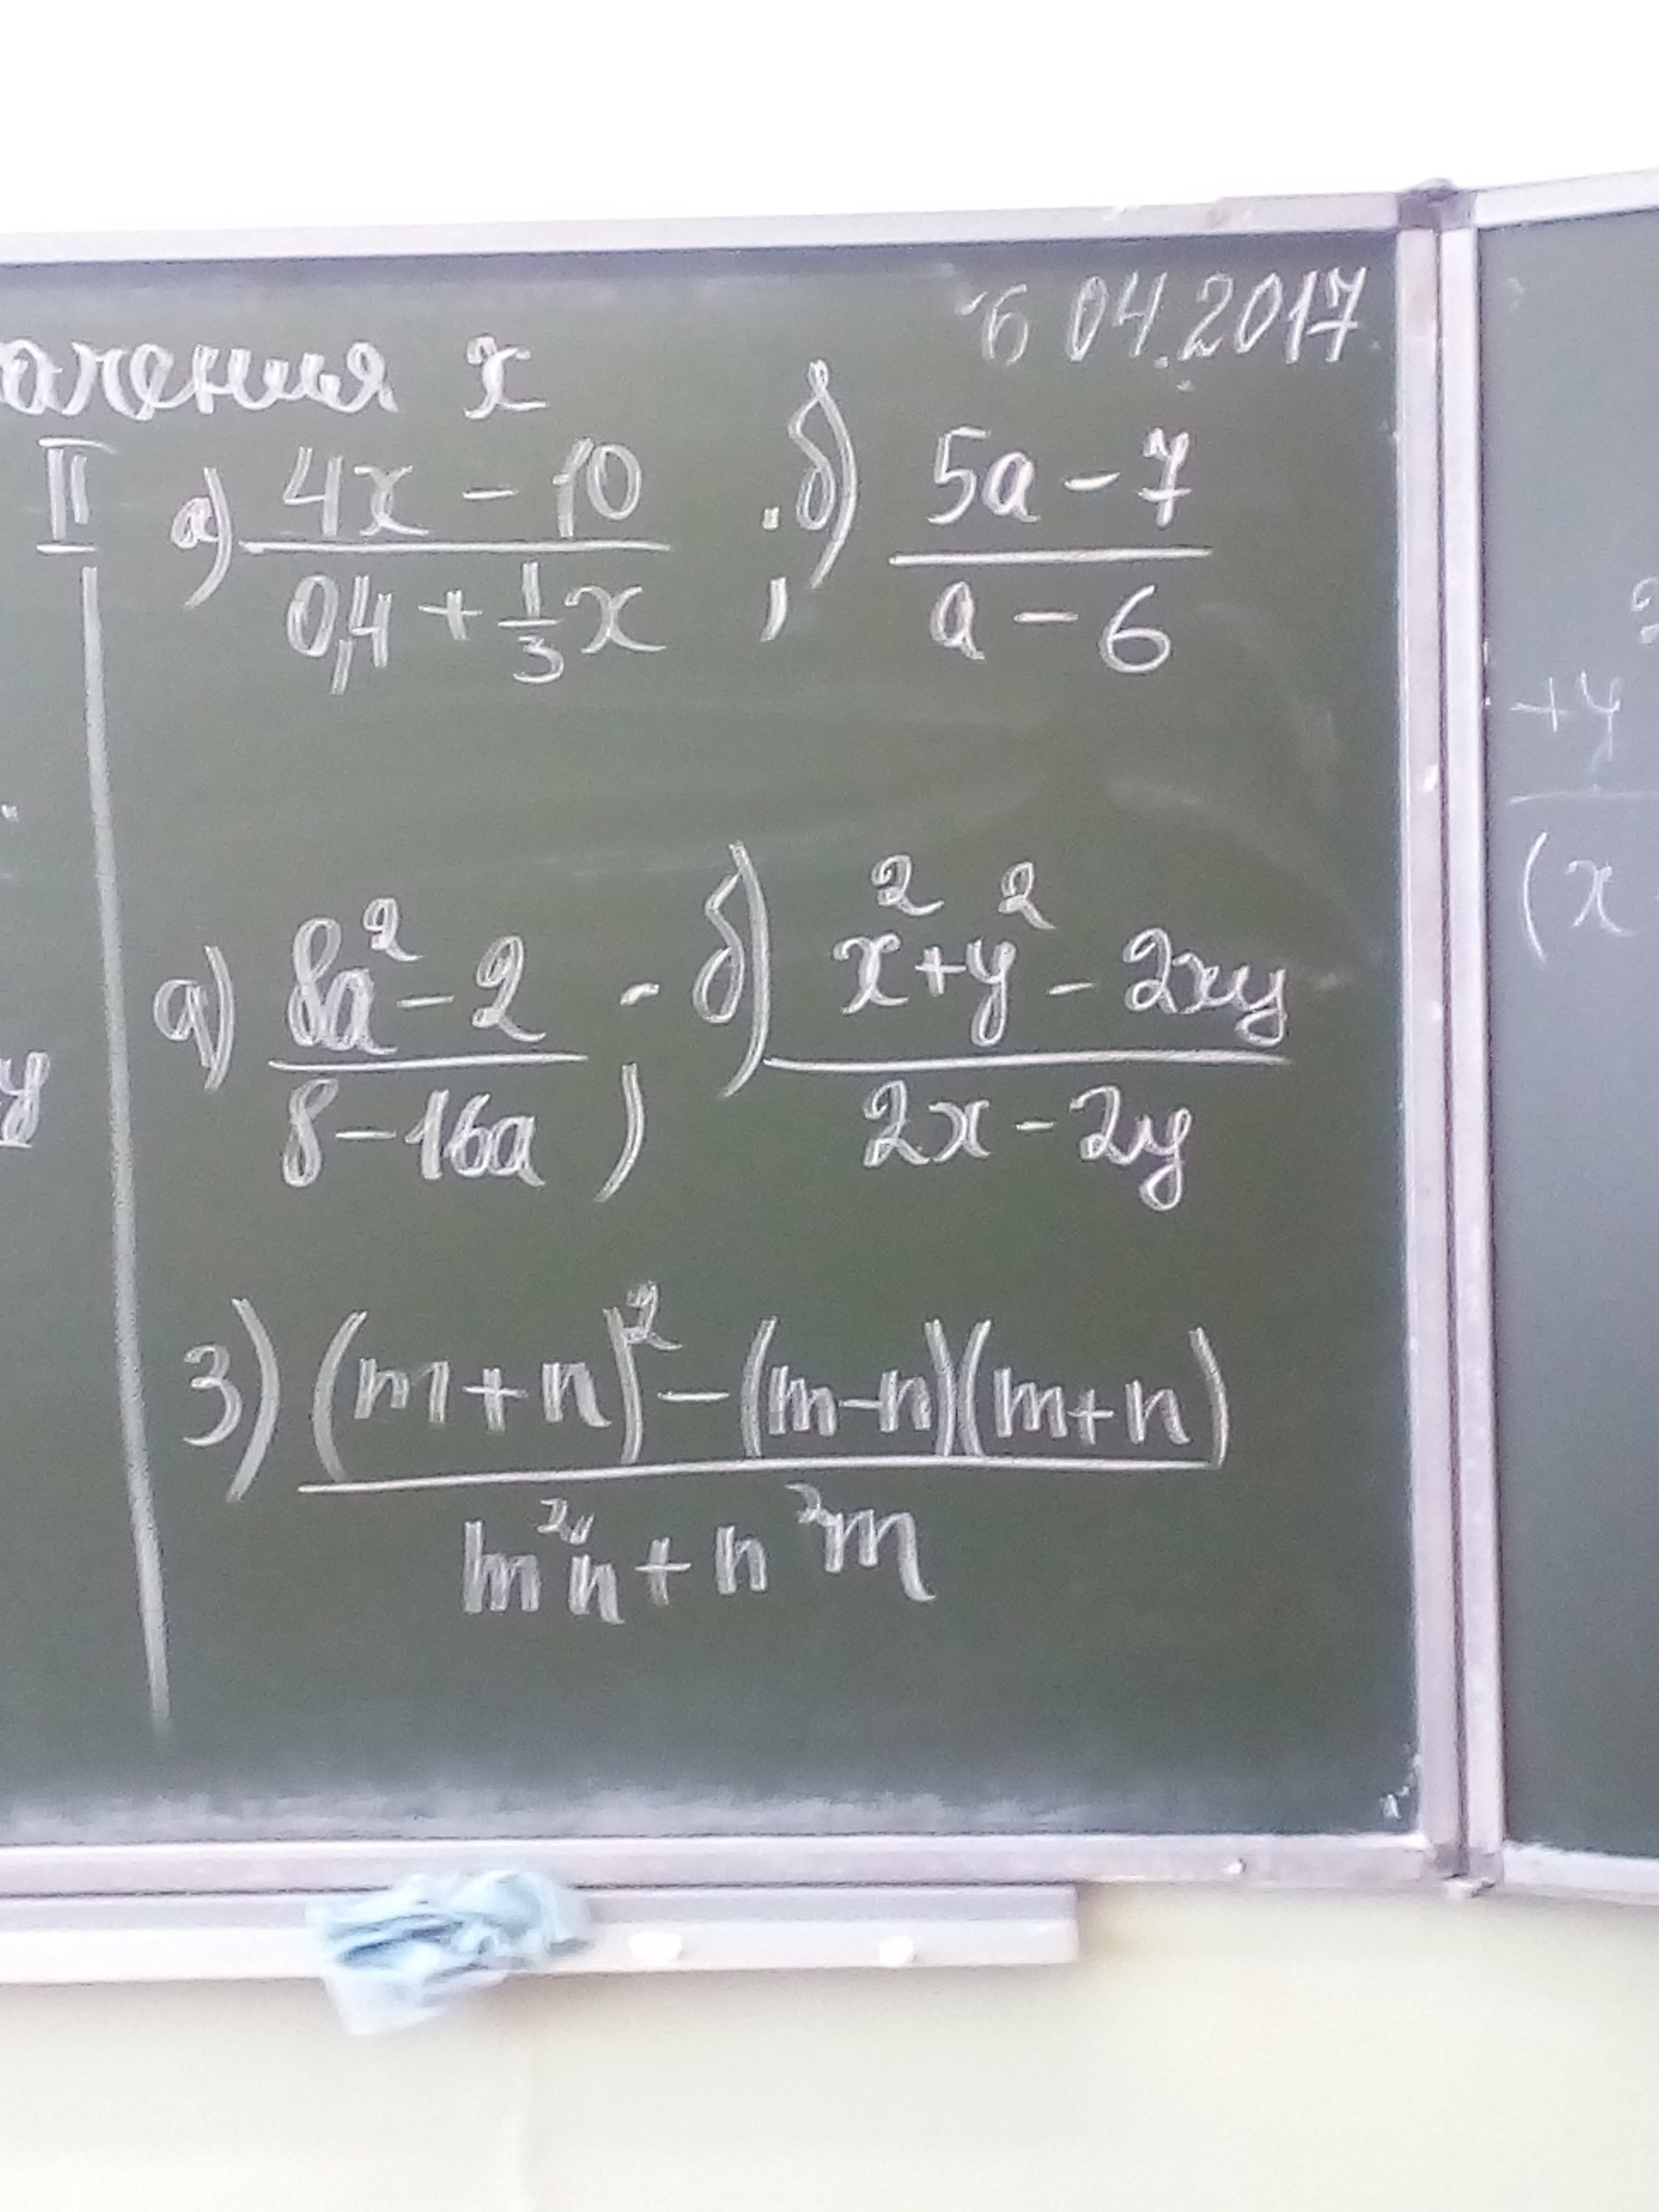 6 04.2017
ачения x
II а) (4x - 10)/(0,4 + 1/3 x) ; б) (5a - 7)/(a - 6)
а) (8a² - 2)/(8 - 16a) ; б) (x² + y² - 2xy)/(2x - 2y)
y
3) ((m+n)² - (m-n)(m+n))/(m²n + n²m)
+y
(x